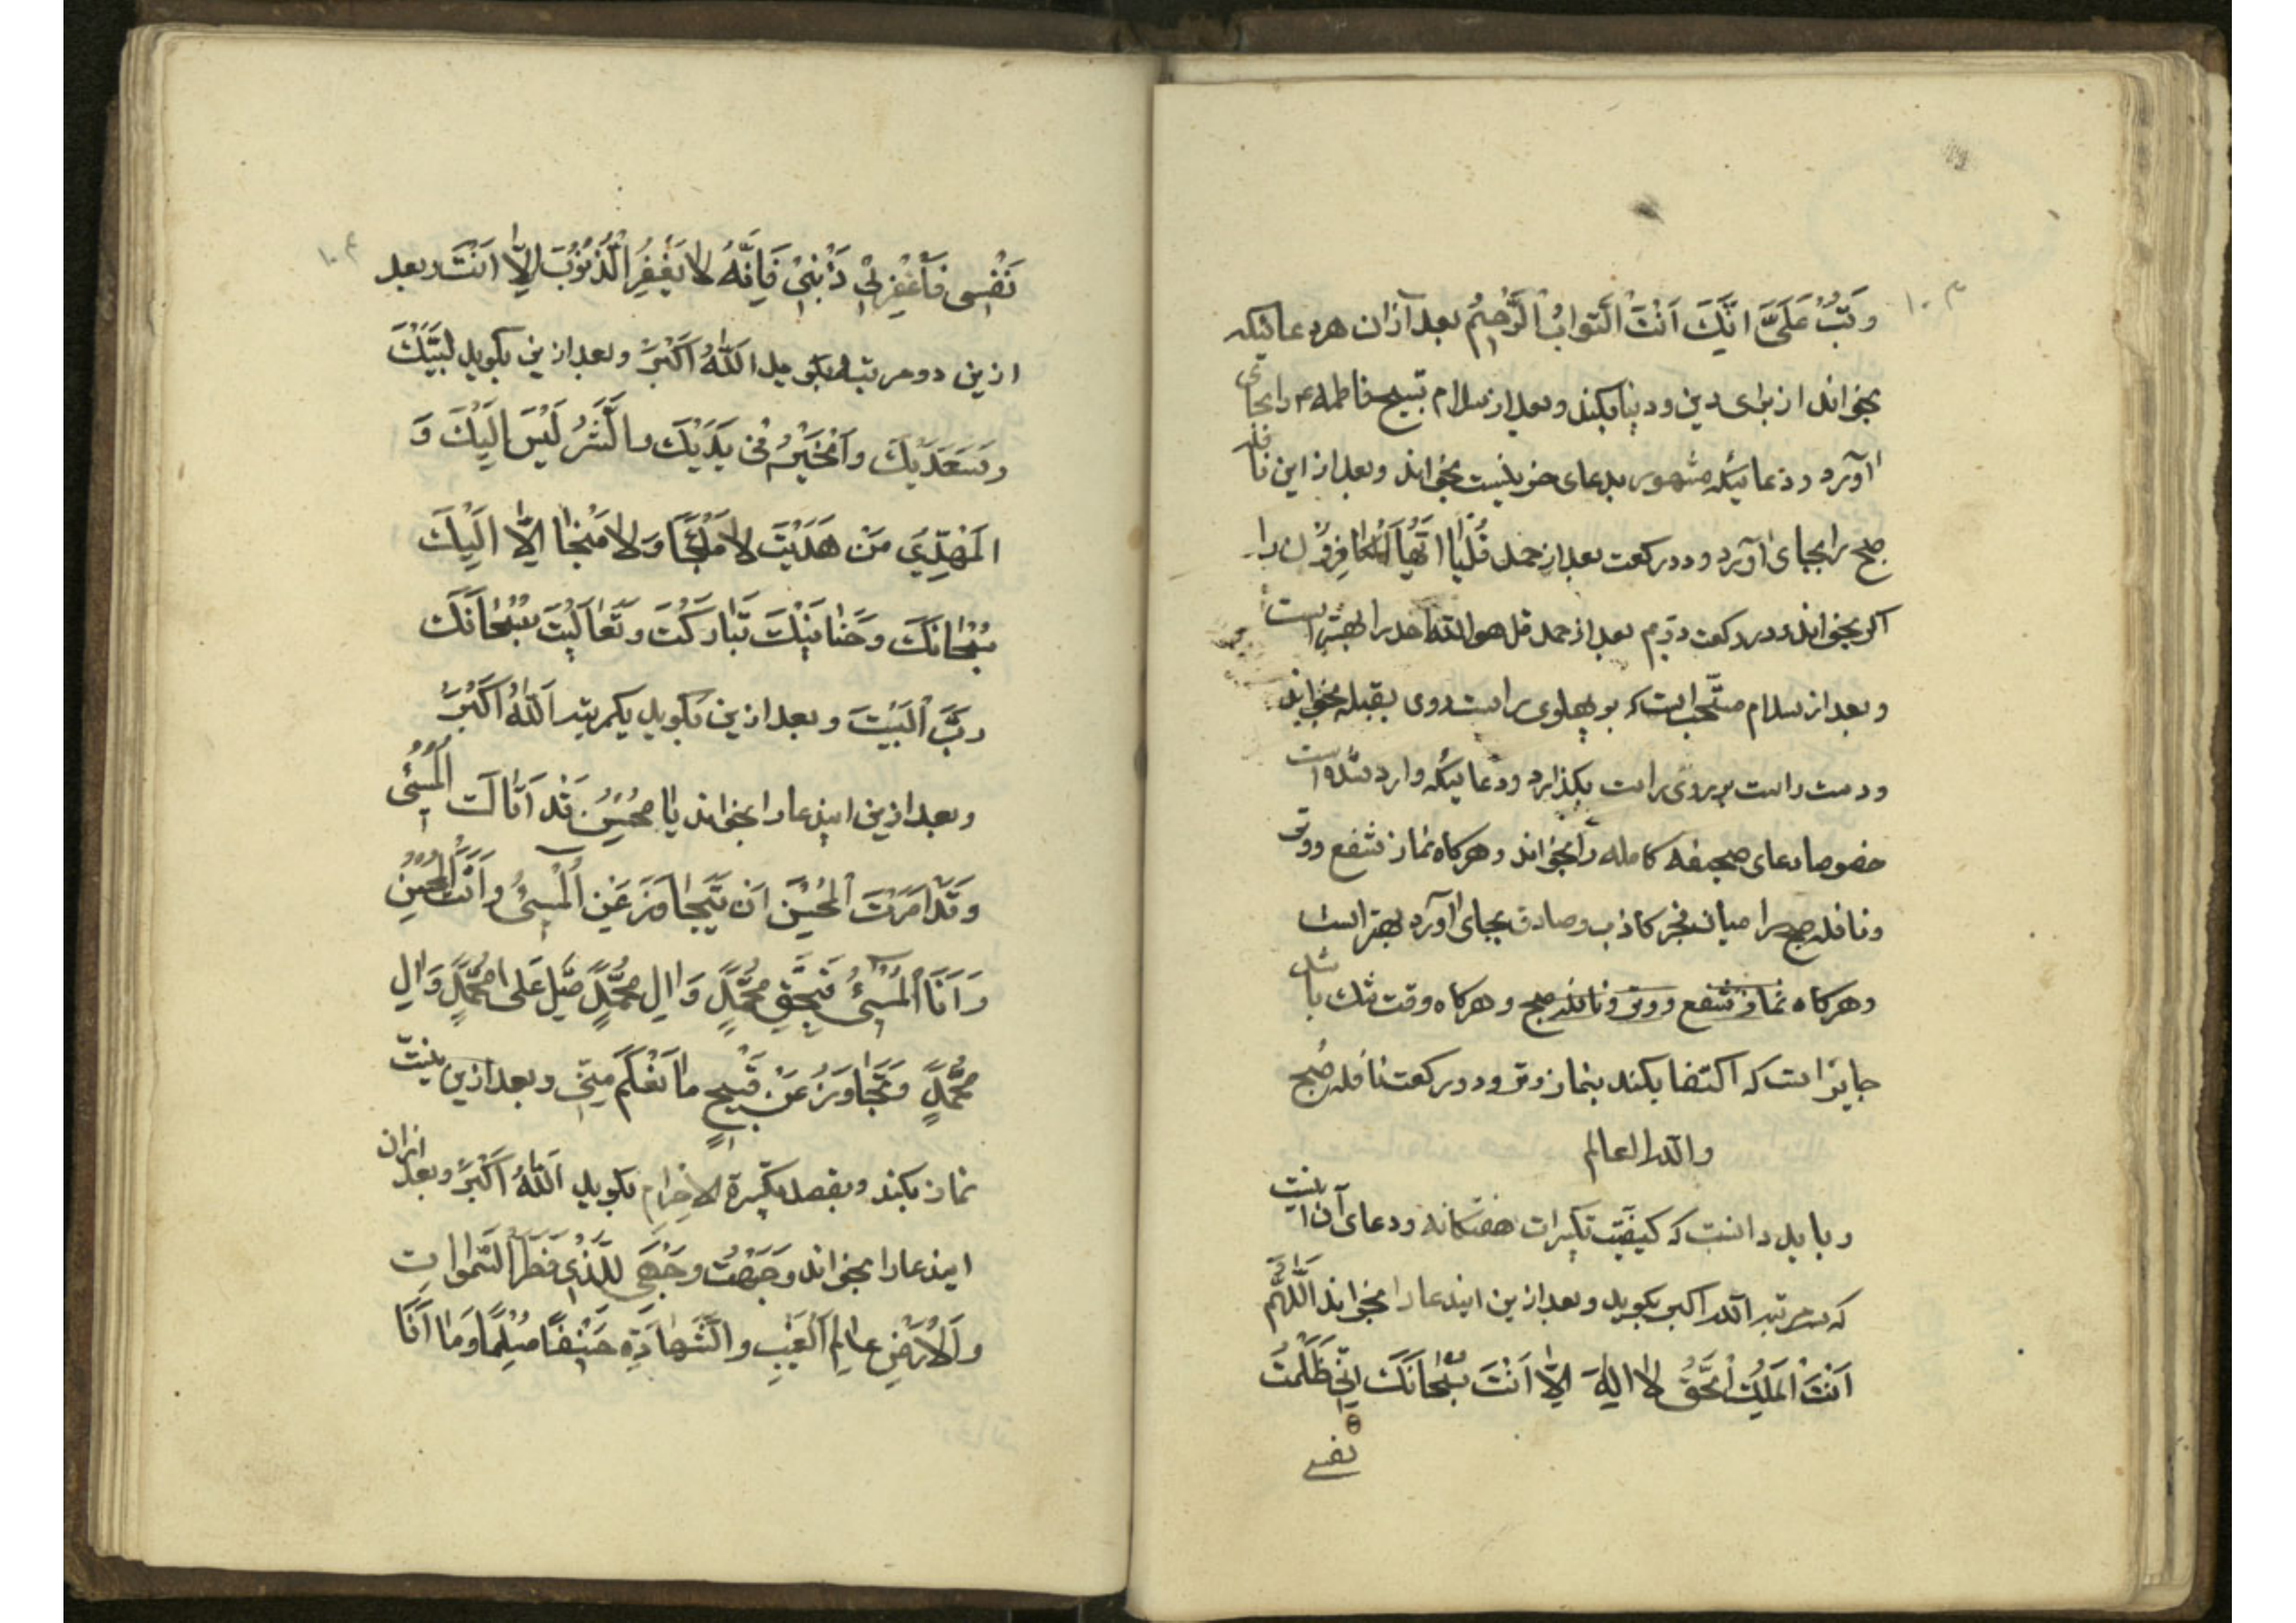 ۱۰۳
وَتُبْ عَلَيَّ اِنَّكَ اَنْتَ التَّوابُ الرَّحيمُ بعد ازان هر دعائیکه
بخواند از برای دین و دنیا بکند و بعد از سلام تسبیح فاطمه ع را بجای
آورد و دعائیکه مشهور بدعای حزینست بخواند و بعد از این نافله
صبح را بجای آورد و در رکعت بعد از حمد قُلْ يٰا اَيُّهَا الْكٰافِرُونَ را
اگر بخواند و در رکعت دویم بعد از حمد قل هو اللّه احد را بهتر است
و بعد از سلام مستحب است که بر پهلوی راست روی بقبله بخوابد
و دست راست بر روی راست بگذارد و دعائیکه وارد شده است
خصوصا دعای صحیفه کامله را بخواند و هرکاه نماز شفع و وتر
و نافله صبح را میان فجر کاذب و صادق بجای آورد بهتر است
و هرکاه نماز شفع و وتر و نافله صبح و هرکاه وقت تنك باشد
جایز است که اکتفا بکند بنماز وتر و دو رکعت نافله صُبح
واللّه العالم
و باید دانست که کیفیت تکبیرات هفتکانه و دعای آن اینست
که سه مرتبه اللّه اکبر بکوید و بعد ازین ایندعا را بخواند اَللّٰهُمَّ
اَنْتَ الْمَلِيكُ الْحَقُّ لا اِلٰهَ اِلّا اَنْتَ سُبْحٰانَكَ اِنّي ظَلَمْتُ
نفسی
۱۰۴
نَفْسِي فَاغْفِرْ لِي ذَنْبِي فَاِنَّهُ لا يَغْفِرُ الذُّنُوبَ اِلّا اَنْتَ و بعد
ازین دو مرتبه بکوید اَللّٰهُ اَكْبَرُ و بعد ازین بکوید لَبَّيْكَ
وَ سَعْدَيْكَ وَالْخَيْرُ فِي يَدَيْكَ وَالشَّرُّ لَيْسَ اِلَيْكَ وَ
الْمَهْدِيُّ مَنْ هَدَيْتَ لا مَلْجَأَ وَلا مَنْجٰا اِلّا اِلَيْكَ
سُبْحٰانَكَ وَحَنٰانَيْكَ تَبٰارَكْتَ وَتَعٰالَيْتَ سُبْحٰانَكَ
رَبَّ الْبَيْتَ و بعد ازین بکوید یکمرتبه اَللّٰهُ اَكْبَرُ
و بعد ازین ایندعا را بخواند يٰا مُحْسِنُ قَدْ اَتٰاكَ الْمُسِيئُ
وَقَدْ اَمَرْتَ الْمُحْسِنَ اَنْ يَتَجٰاوَزَ عَنِ الْمُسِيئُ وَاَنْتَ الْمُحْسِنُ
وَ اَنَا الْمُسِيئُ فَبِحَقِّ مُحَمَّدٍ وَ اٰلِ مُحَمَّدٍ صَلِّ عَلى مُحَمَّدٍ وَ اٰلِ
مُحَمَّدٍ وَ تَجٰاوَزْ عَنْ قَبيحِ مٰا تَعْلَمُ مِنّي و بعد ازین نیت
نماز بکند و بقصد تکبیرة الاحرام بکوید اَللّٰهُ اَكْبَرُ و بعد ازان
ایندعا را بخواند وَجَّهْتُ وَجْهِيَ لِلَّذِي فَطَرَ السَّمٰوٰاتِ
وَالْاَرْضِ عٰالِمِ الْغَيْبِ وَالشَّهٰادَةِ حَنيفًا مُسْلِمًا وَمٰا اَنَا